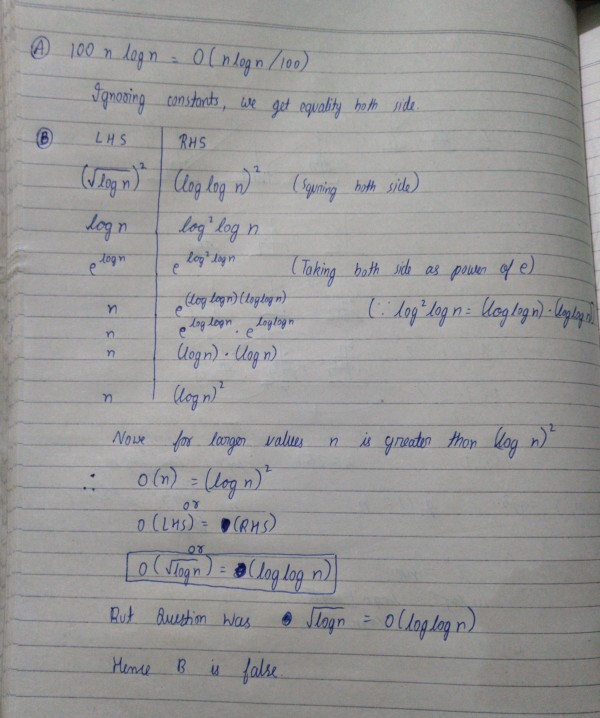 Ⓐ 100 n log n = O(n log n / 100)
Ignoring constants, we get equality both side.
Ⓑ LHS | RHS
(√log n)² | (log log n)² (Squring both side)
log n | log² log n
e^(log n) | e^(log² log n) (Taking both side as power of e)
n | e^((log log n)(log log n)) (∵ log² log n = (log log n)·(log log n))
n | e^(log log n) · e^(log log n)
n | (log n) · (log n)
n | (log n)²
Now for larger values n is greater than (log n)²
∴ O(n) = (log n)²
or
O(LHS) = (RHS)
or
O(√log n) = (log log n)
But Question was √log n = O(log log n)
Hence B is false.